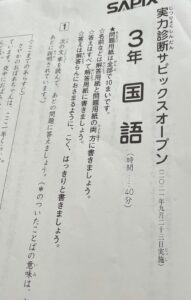 SAPIX
実力診断サピックスオープン
(二〇二一年九月二十三日実施)
3年 国語
(時間……40分)
●問題用紙は全部で10まいです。
☆名前などは解答用紙と問題用紙の両方に書きましょう。
☆答えはすべて解答用紙に書きましょう。
☆答えは解答らんにおさまるように、こく、はっきりと書きましょう。
1
次の文章を読んで、あとの問題に答えましょう。(*のついたことばの意味は、
あとに説明されています。)